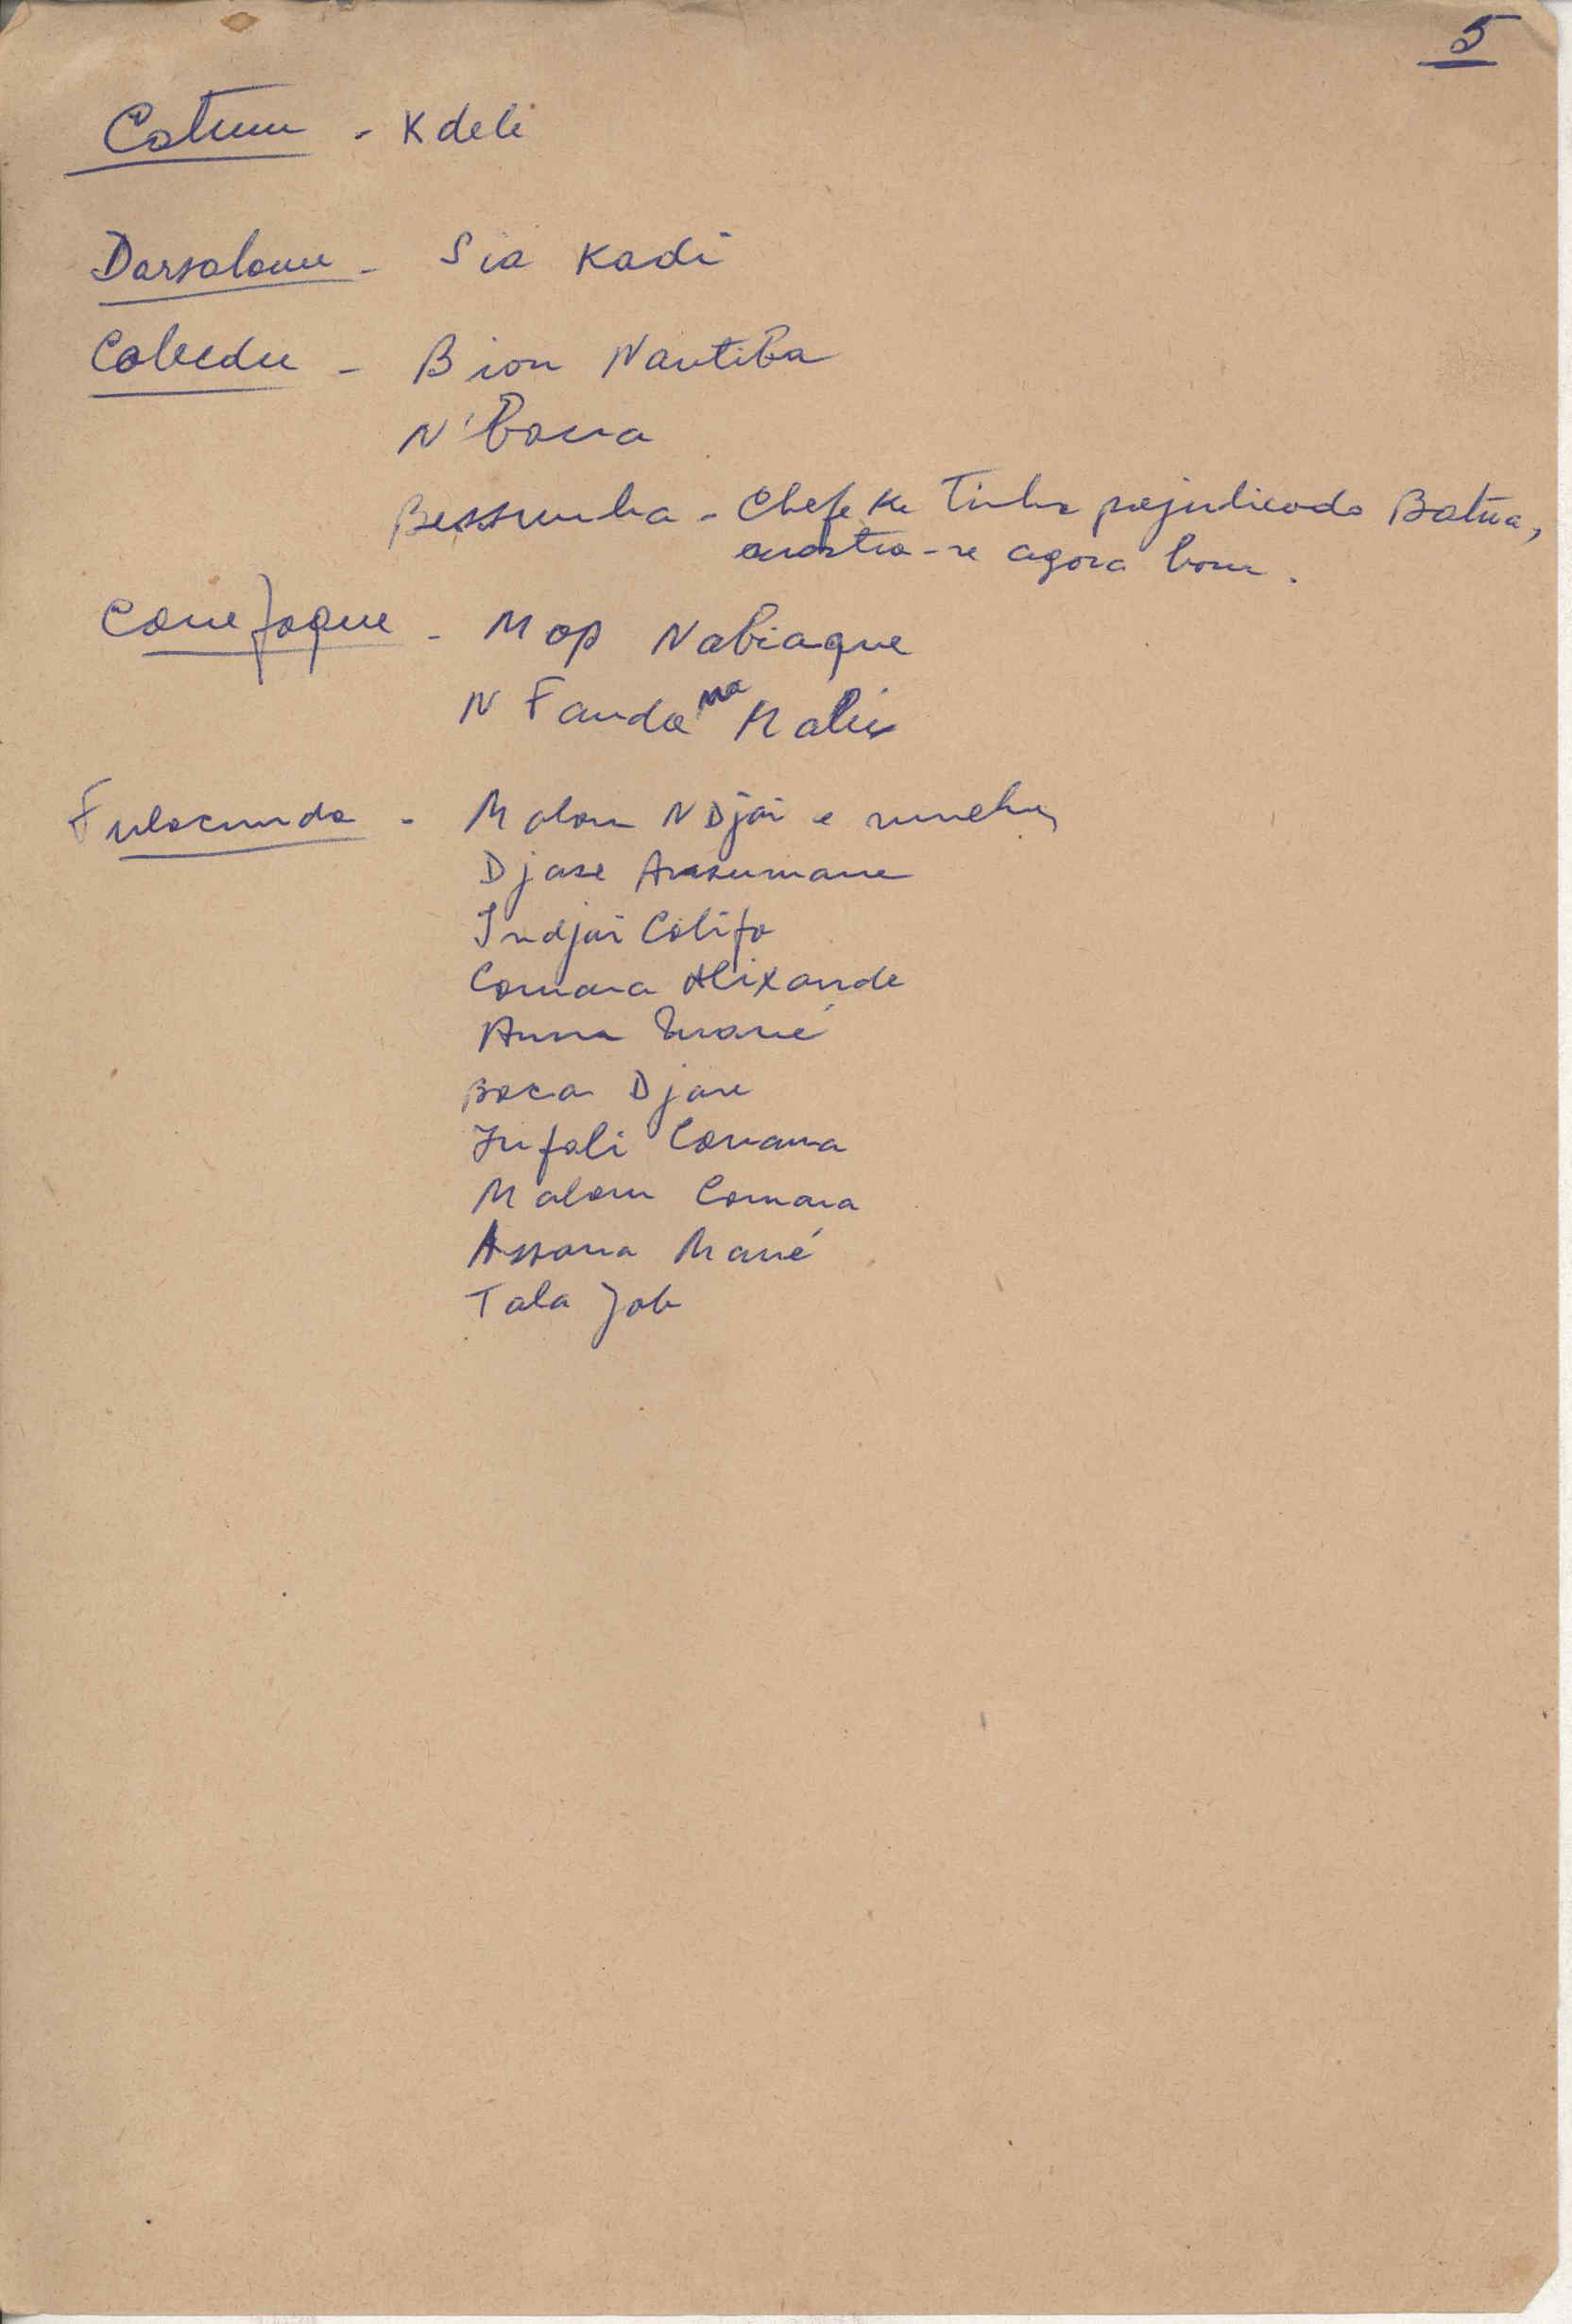 5
Catum - Kdeli
Darsalame - Sia Kadi
Cabedu - Bion Nantiba
N'Bana
Bessumba - Chefe ke Tinha prejudicado Batna,
mostra-se agora bom.
Camefaque - Mop Nabiaque
N Fanda na Mali
Fulacunda - Malam N Djai e
Djase Ansumane
Indjai Califa
Camara Alixande
Ansu Mané
Baca Djase
Infali Camara
Malam Camara
Assana Mané
Tala Job